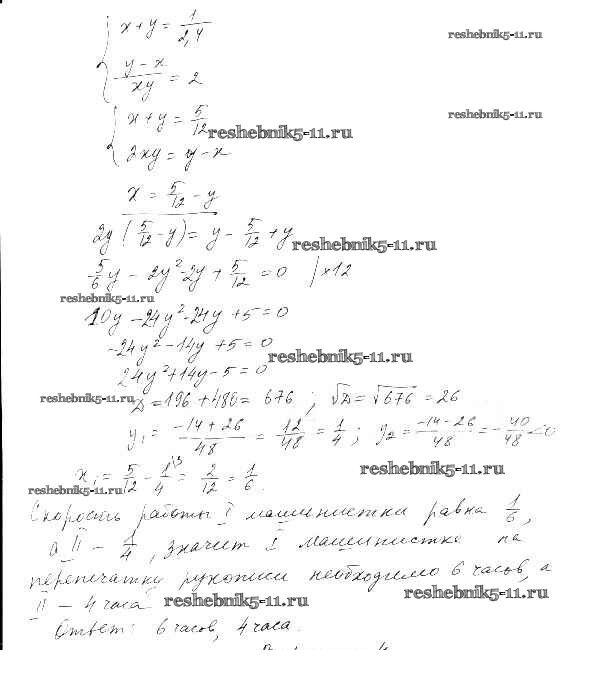 x + y = 1/2,4
reshebnik5-11.ru
(y - x)/xy = 2
x + y = 5/12
reshebnik5-11.ru
reshebnik5-11.ru
2xy = y - x
x = 5/12 - y
2y (5/12 - y) = y - 5/12 + y
reshebnik5-11.ru
5/6 y - 2y² - 2y + 5/12 = 0 /×12
reshebnik5-11.ru
10y - 24y² - 24y + 5 = 0
-24y² - 14y + 5 = 0
reshebnik5-11.ru
24y² + 14y - 5 = 0
reshebnik5-11.ru
D = 196 + 480 = 676 ; √D = √676 = 26
y₁ = (-14 + 26)/48 = 12/48 = 1/4 ; y₂ = (-14 - 26)/48 = -40/48 < 0
reshebnik5-11.ru
x₁ = 5/12 - 1/4 \3 = 2/12 = 1/6.
reshebnik5-11.ru
Скорость работы I машинистки равна 1/6,
а II - 1/4, значит I машинистке на
перепечатку рукописи необходимо 6 часов, а
reshebnik5-11.ru
II - 4 часа
reshebnik5-11.ru
Ответ: 6 часов, 4 часа.